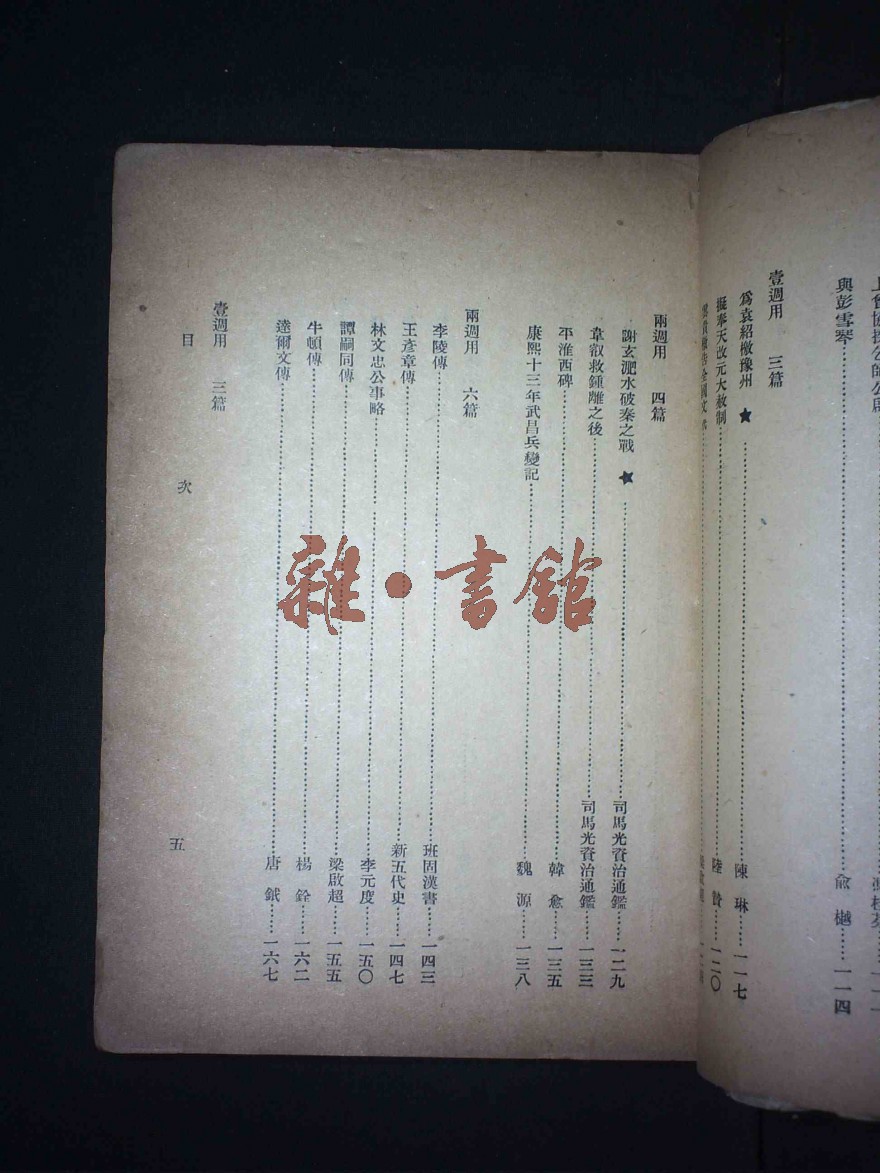 與彭雪琴……俞樾……一一四
壹週用 三篇
爲袁紹檄豫州★……陳琳……一一七
擬奉天改元大赦制……陸贄……一二〇
兩週用 四篇
謝玄淝水破秦之戰★……司馬光資治通鑑……一二九
韋叡救鍾離之後……司馬光資治通鑑……一三三
平淮西碑……韓愈……一三五
康熙十三年武昌兵變記……魏源……一三八
兩週用 六篇
李陵傳……班固漢書……一四三
王彥章傳……新五代史……一四七
林文忠公事略……李元度……一五〇
譚嗣同傳……梁啟超……一五五
牛頓傳……楊銓……一六二
達爾文傳……唐鉞……一六七
壹週用 三篇
目次 五
雜·書館